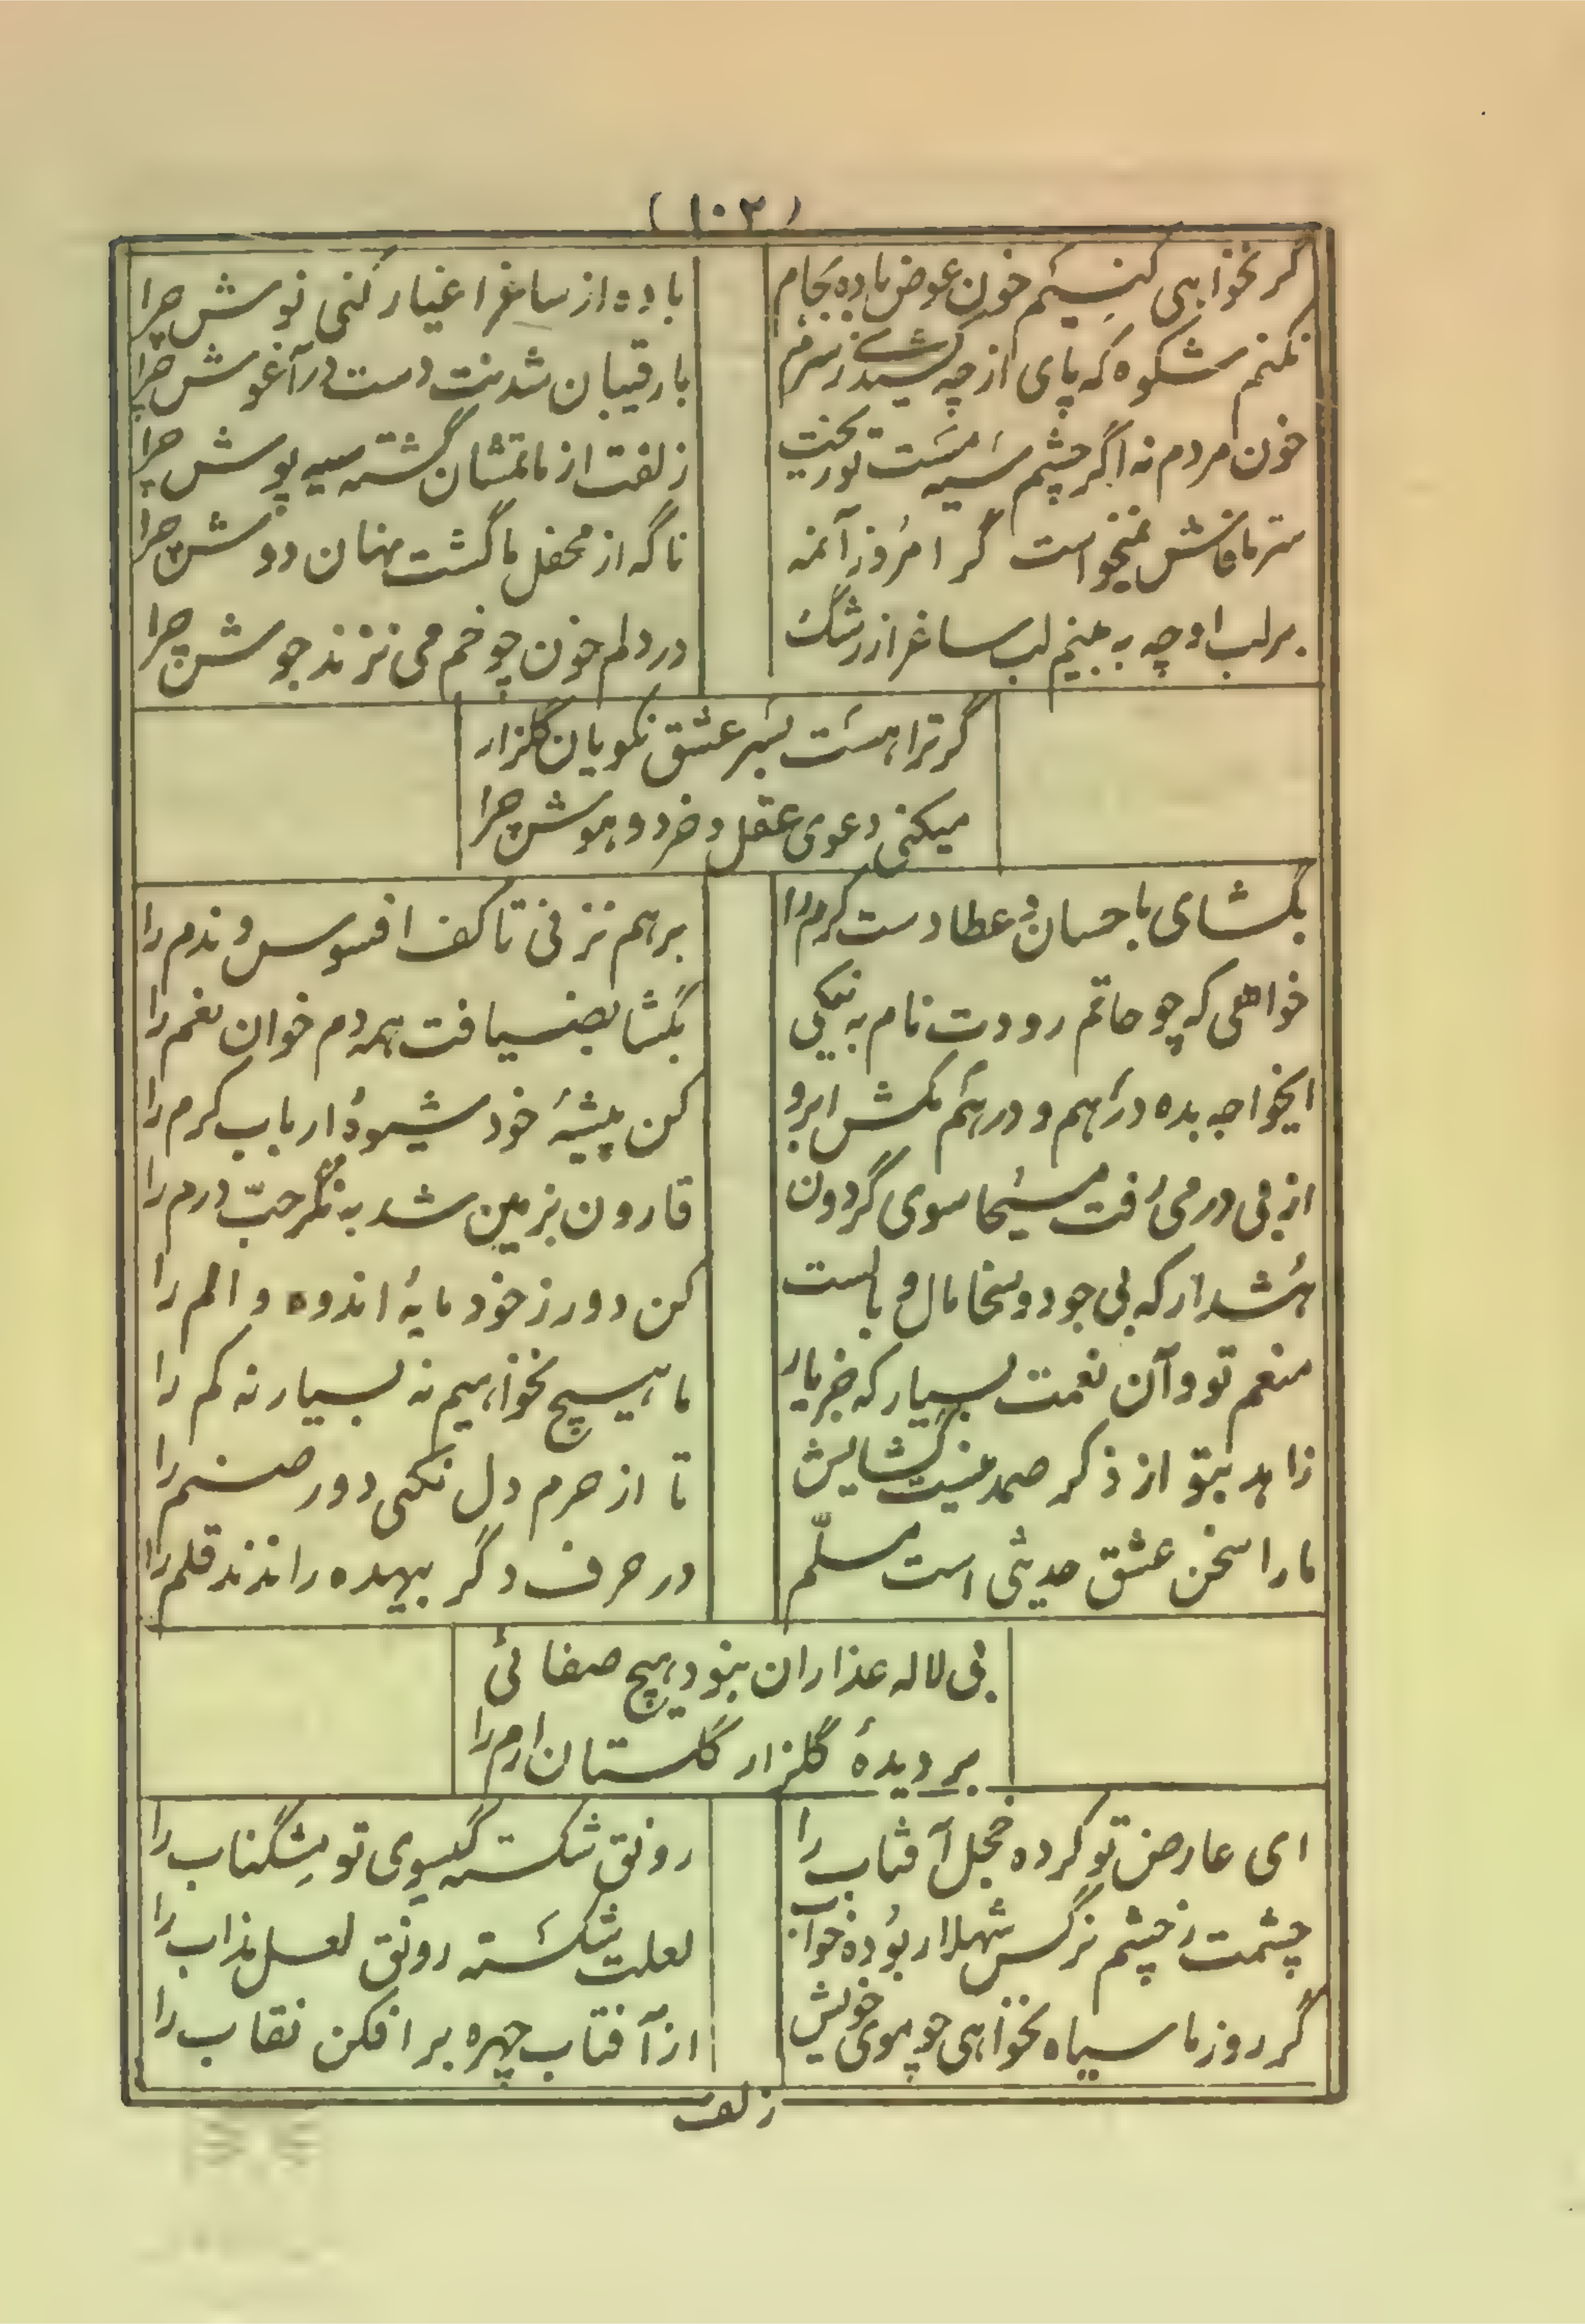 (۱۰۲)
گر نخواهی کنیم خون عوض باده بجام
باده از ساغر اغیار کنی نوش چرا
نکنم شکوه که پای از چه کشیدی ز سرم
با رقیبان شدنت دست در آغوش چرا
خون مردم نه اگر چشم سیه مست تو ریخت
زلفت از ماتمشان گشته سیه پوش چرا
سر ما فاش نمیخواست گر امروز آنمه
ناگه از محفل ما گشت نهان دوش چرا
بر لب او چه به بینم لب ساغر از رشک
در دلم خون چو خم می نزند جوش چرا
گر ترا هست بسر عشق نکویان گلزار
میکنی دعوی عقل و خرد و هوش چرا
بگشای باحسان و عطا دست کرم را
برهم نزنی تا کف افسوس و ندم را
خواهی که چو حاتم رودت نام به نیکی
بگشا بضیافت همه دم خوان نعم را
ایخواجه بده دراهم و درهم مکش ابرو
کن پیشهٔ خود شیوهٔ ارباب کرم را
از بی درمی رفت مسیحا سوی گردون
قارون بزمین شد به نگر حبّ درم را
هشدار که بی جود و سخا مال وبالست
کن دور ز خود مایهٔ اندوه و الم را
منعم تو و آن نعمت بسیار که جز یار
ما هیچ نخواهیم نه بسیار نه کم را
زاهد بتو از ذکر صمد نیست گشایش
تا از حرم دل نکنی دور صنم را
ما را سخن عشق حدیثی است مسلّم
در حرف دگر بیهده راندند قلم را
بی لاله عذاران بنود هیچ صفائی
بر دیدهٔ گلزار گلستان ارم را
ای عارض تو کرده خجل آفتاب را
رونق شکسته گیسوی تو مشگناب را
چشمت ز چشم نرگس شهلا ربوده خواب
لعلت شکسته رونق لعل مذاب را
گر روز ما سیاه نخواهی چو موی خویش
از آفتاب چهره برافکن نقاب را
زلف